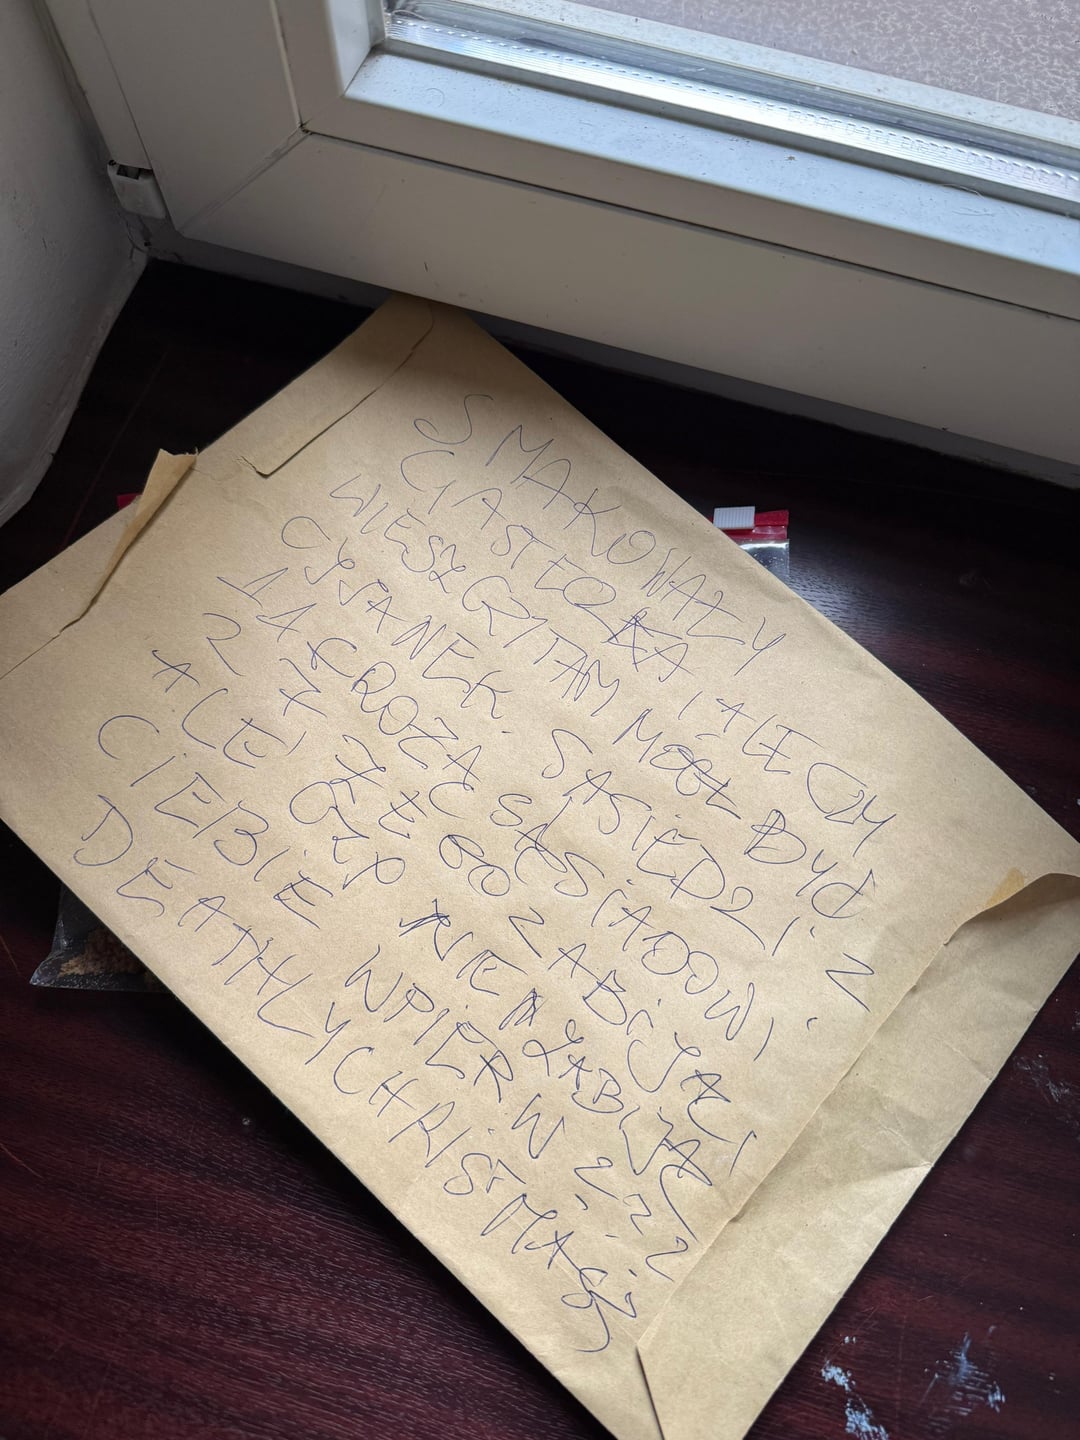 SMAKOWAŁY
CIASTECZKA ALE CZY
WIESZ CZY TAM MÓGŁ BYĆ
CYJANEK. SĄSIEDZI. Z
1A GROŻĄ SĄSIADOWI.
Z ŻE GO ZABIJĄ
ALE CZY NIE ZABIJĄ
CIEBIE WPIERW ???
DEATHLY CHRISTMAS